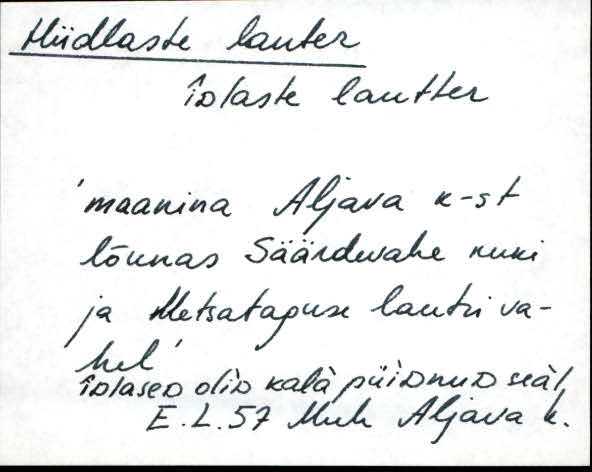 Hiidlaste lauter
îᴅlaste lautter
'maanina Aljava k-st
lõunas Säärdevahe nuki
ja Metsataguse lautri va-
hel'
îᴅlaseᴅ oliᴅ kalà püiᴅnuᴅ seäl,
E.L.57 Muh Aljava k.